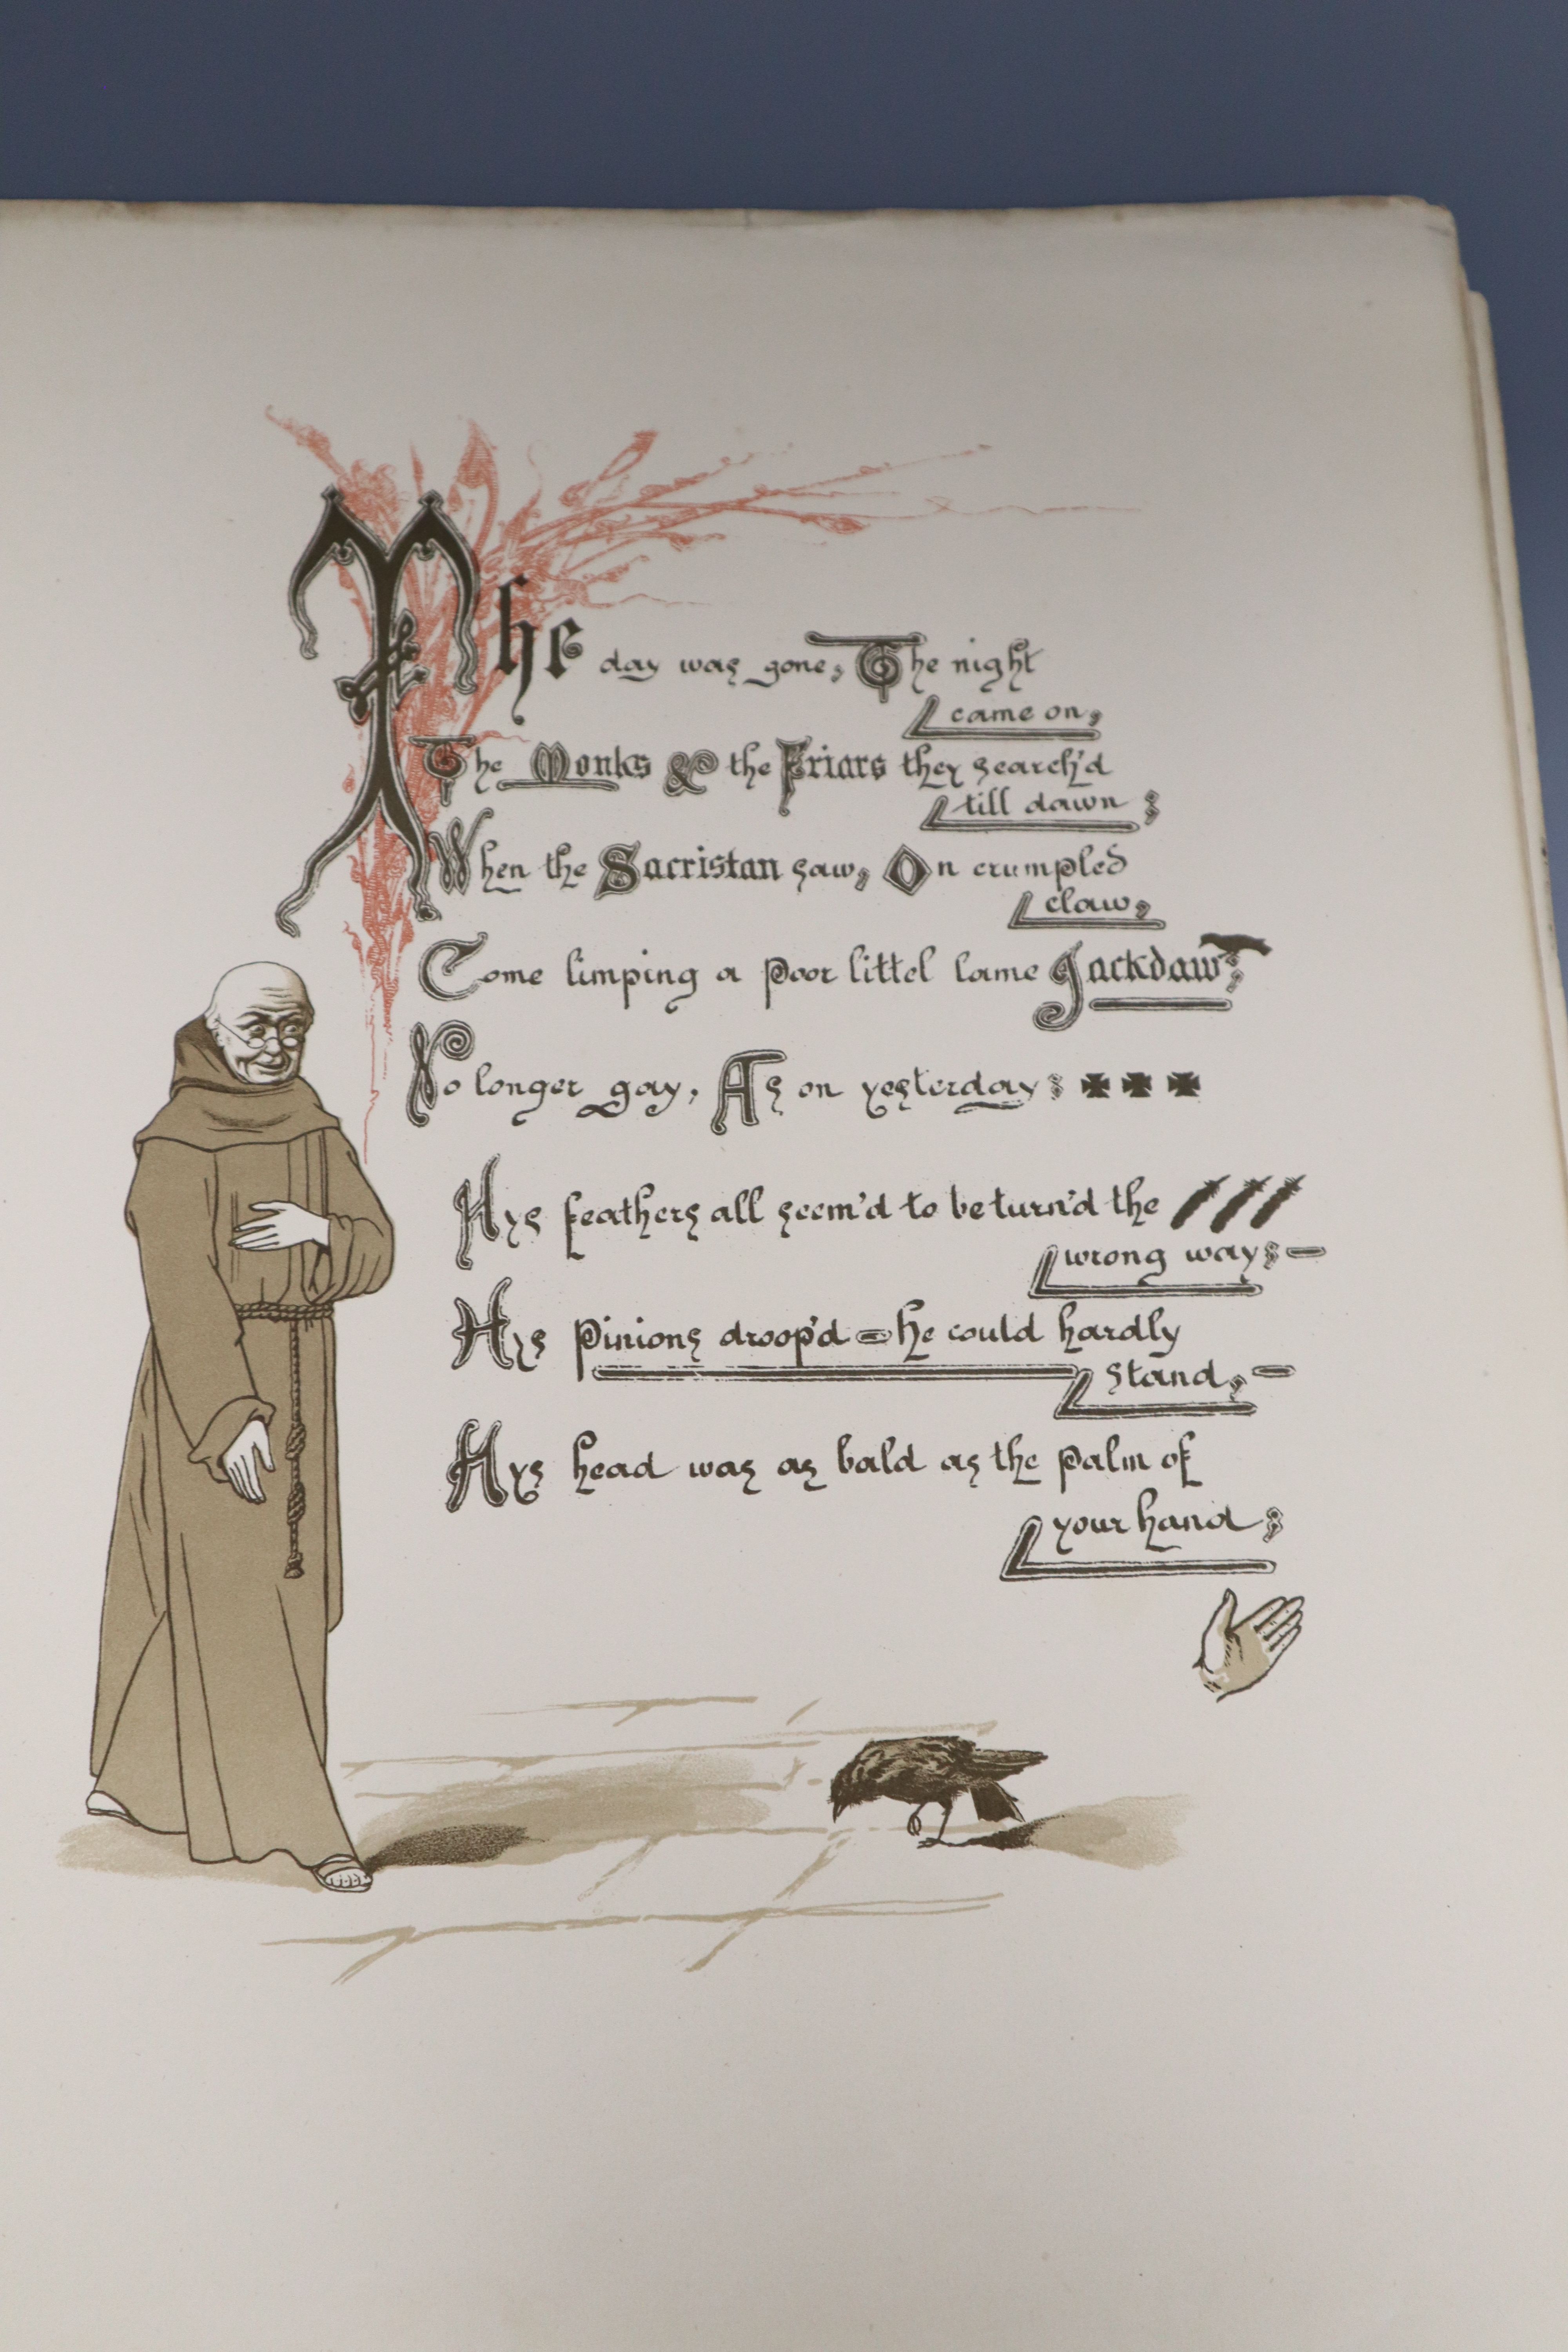 The day was gone, The night
came on,
The Monks & the Friars they search'd
till dawn;
When the Sacristan saw, On crumpled
claw,
Come limping a poor littel lame Jackdaw;
No longer gay, As on yesterday;
Hys feathers all seem'd to be turn'd the
wrong way;-
Hys pinions droop'd - he could hardly
stand,-
Hys head was as bald as the palm of
your hand;